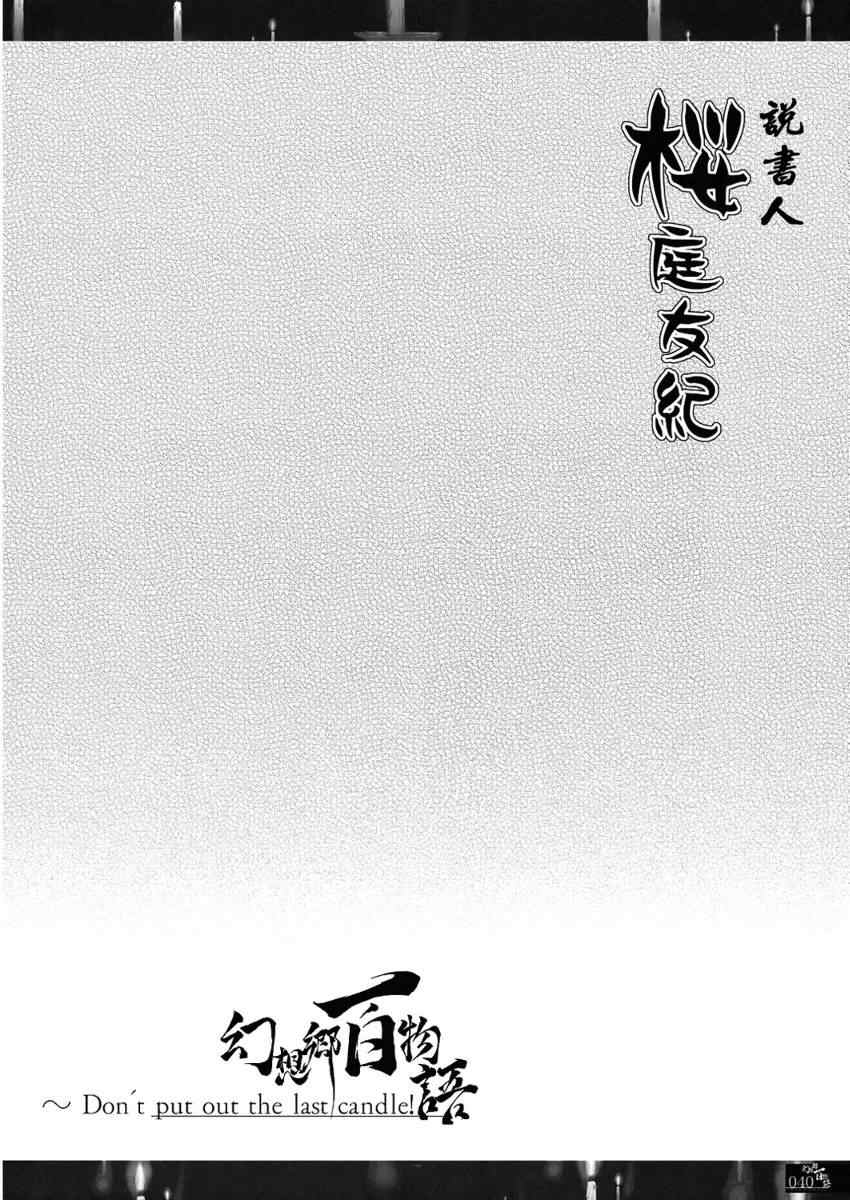 説書人
桜庭友紀
幻想郷百物語
～ Don´t put out the last candle!
040